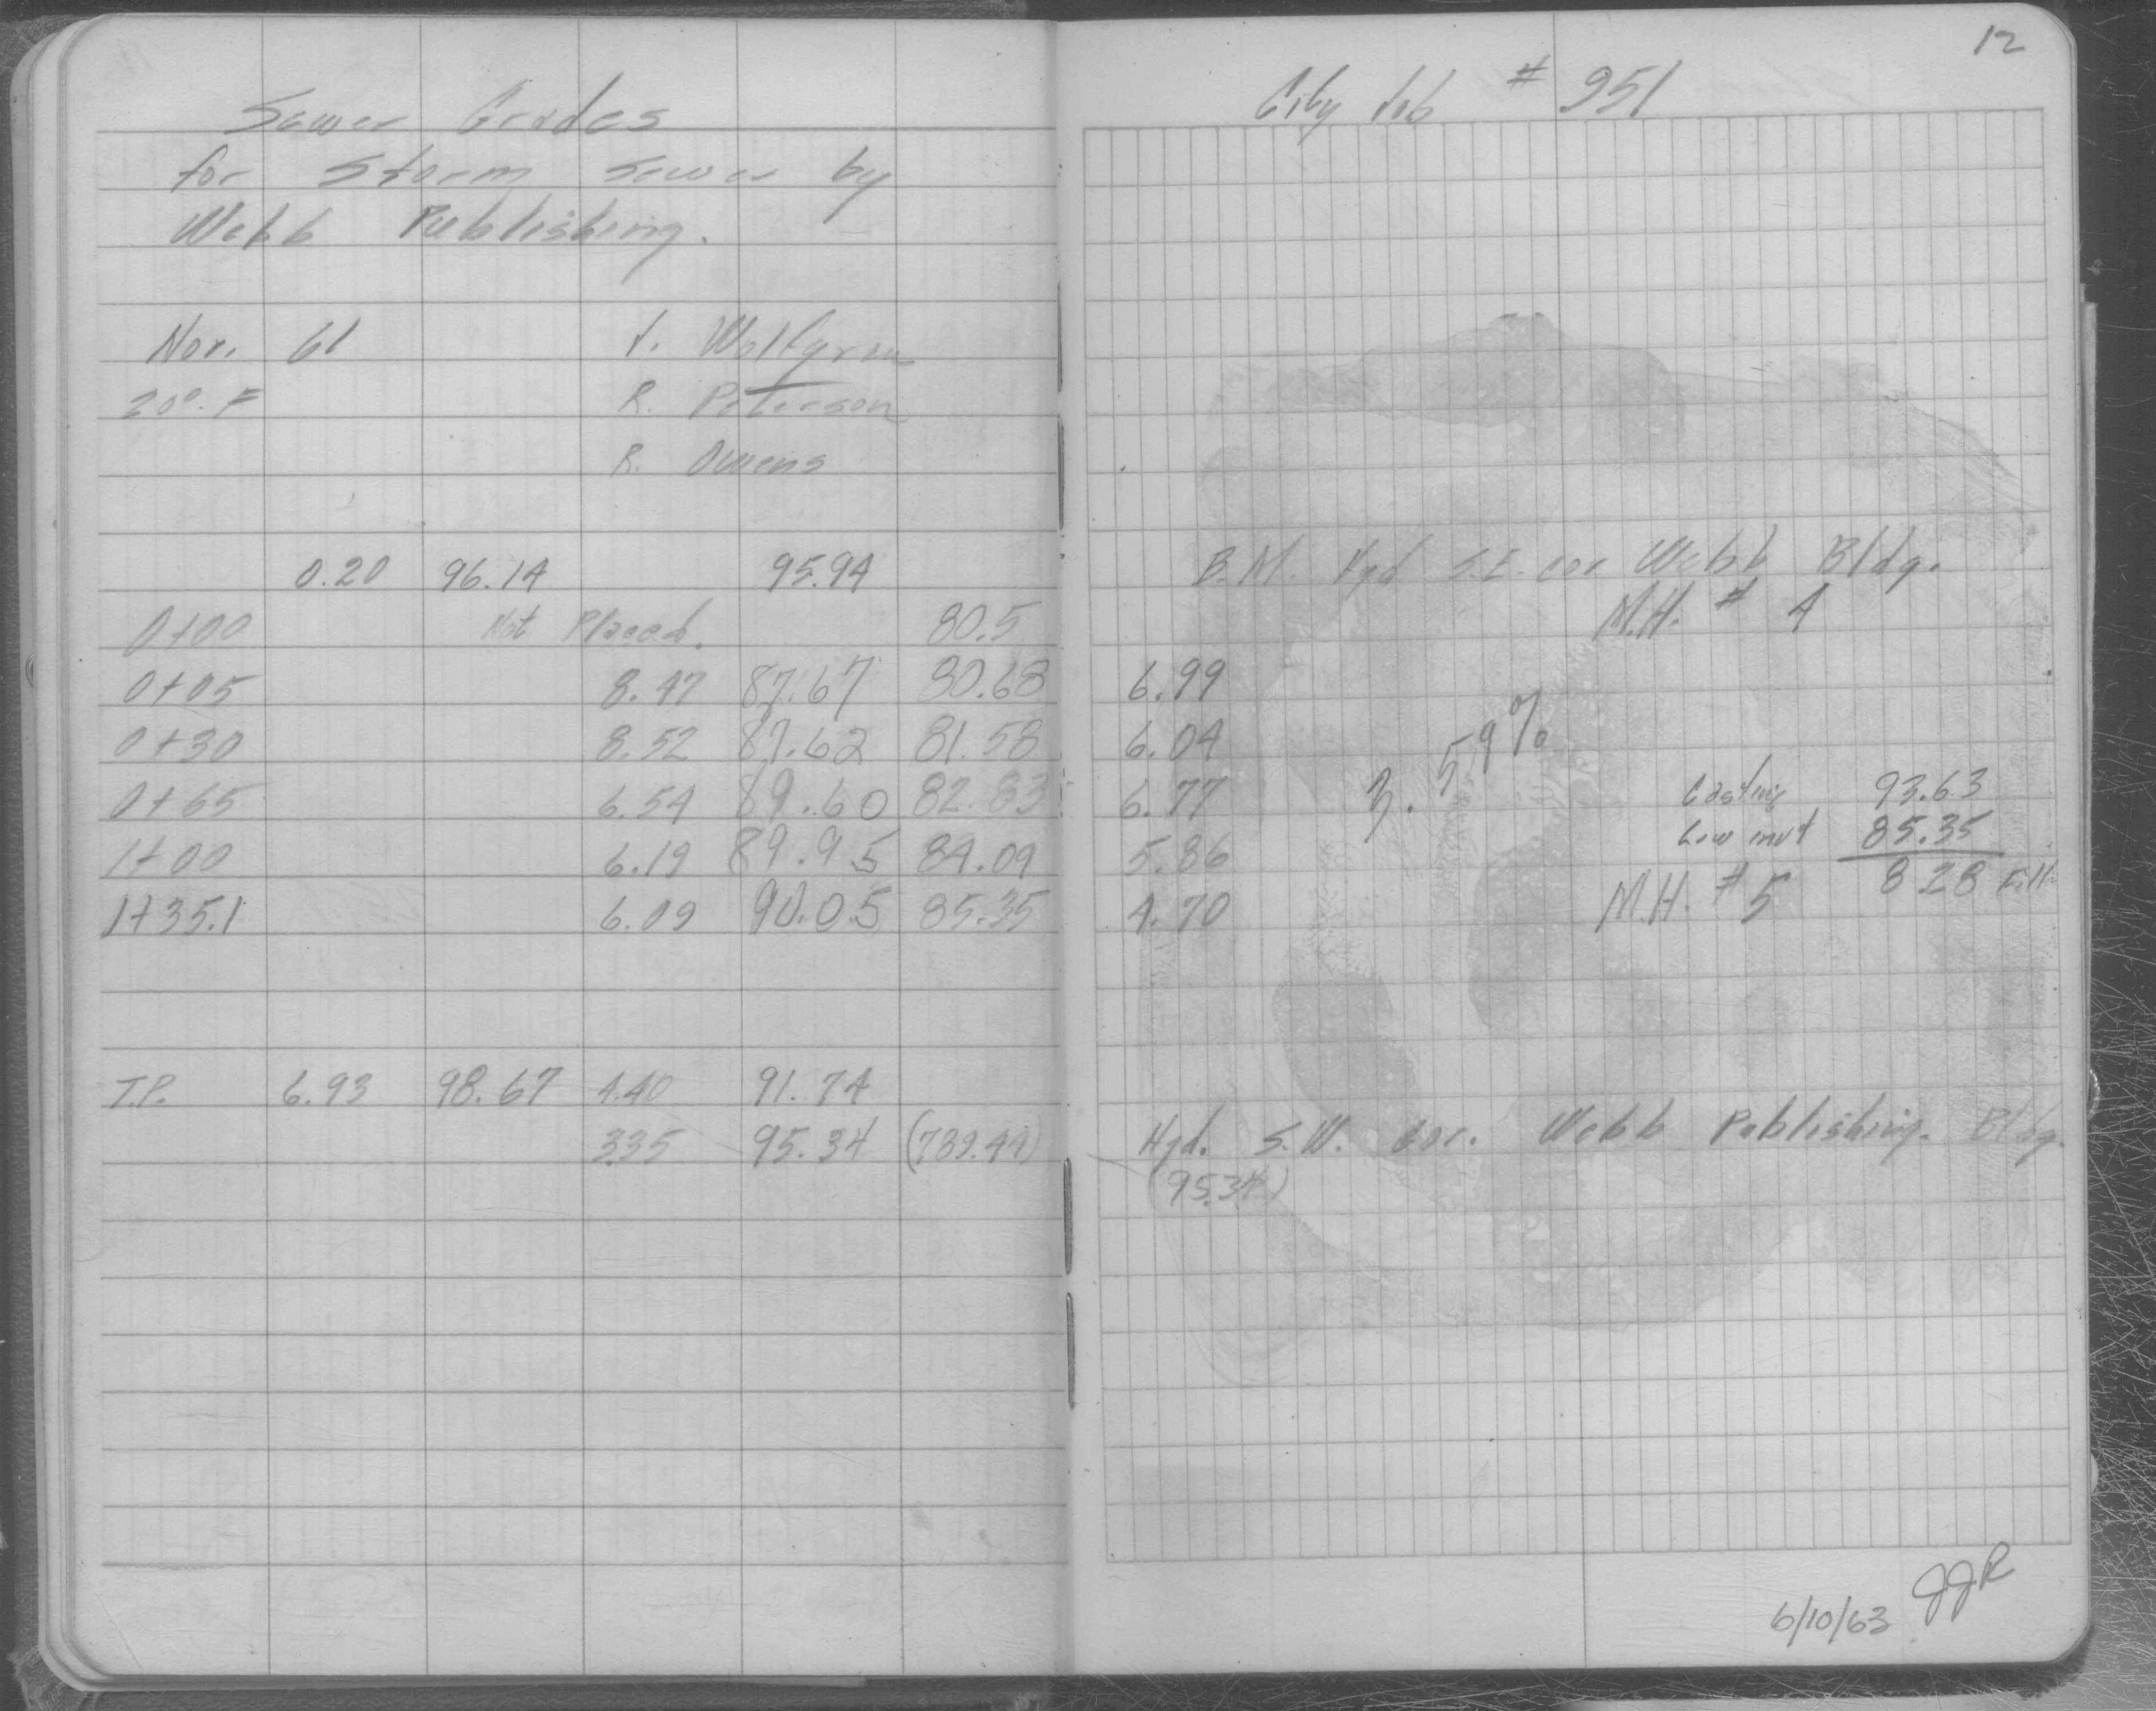 Sewer Grades
for Storm Sewer by
Webb Publishing.
Nov. 61 J. Wolfgram
20°. F R. Peterson
R. Owens
0.20 96.14 95.94
0+00 Not Placed. 80.5
0+05 8.47 87.67 80.68
0+30 8.52 87.62 81.58
0+65 6.54 89.60 82.83
1+00 6.19 89.95 84.09
1+35.1 6.09 90.05 85.35
T.P. 6.93 98.67 4.40 91.74
3.35 95.34 (789.44)
12
City Job # 951
B.M. Hyd S.E. cor Webb Bldg.
M.H. # 4
6.99
6.04
6.77
5.86
4.70
3.59%
Casting 93.63
Low invt 85.35
8.28 Fill
M.H. # 5
Hyd. S.W. cor. Webb Publishing. Bldg.
(95.34)
6/10/63 JJR